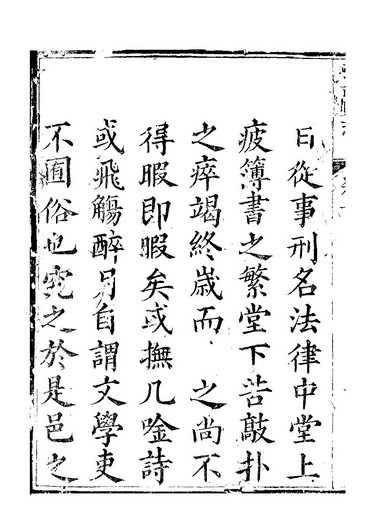 日從事刑名法律中堂上
疲簿書之繁堂下苦敲扑
之瘁竭終歲而 之尚不
得暇即暇矣或撫几唫詩
或飛觴醉月自謂文學吏
不囿俗也究之於是邑之